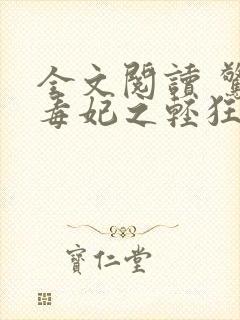 全文閱讀 驚
毒妃之輕狂
寶仁堂